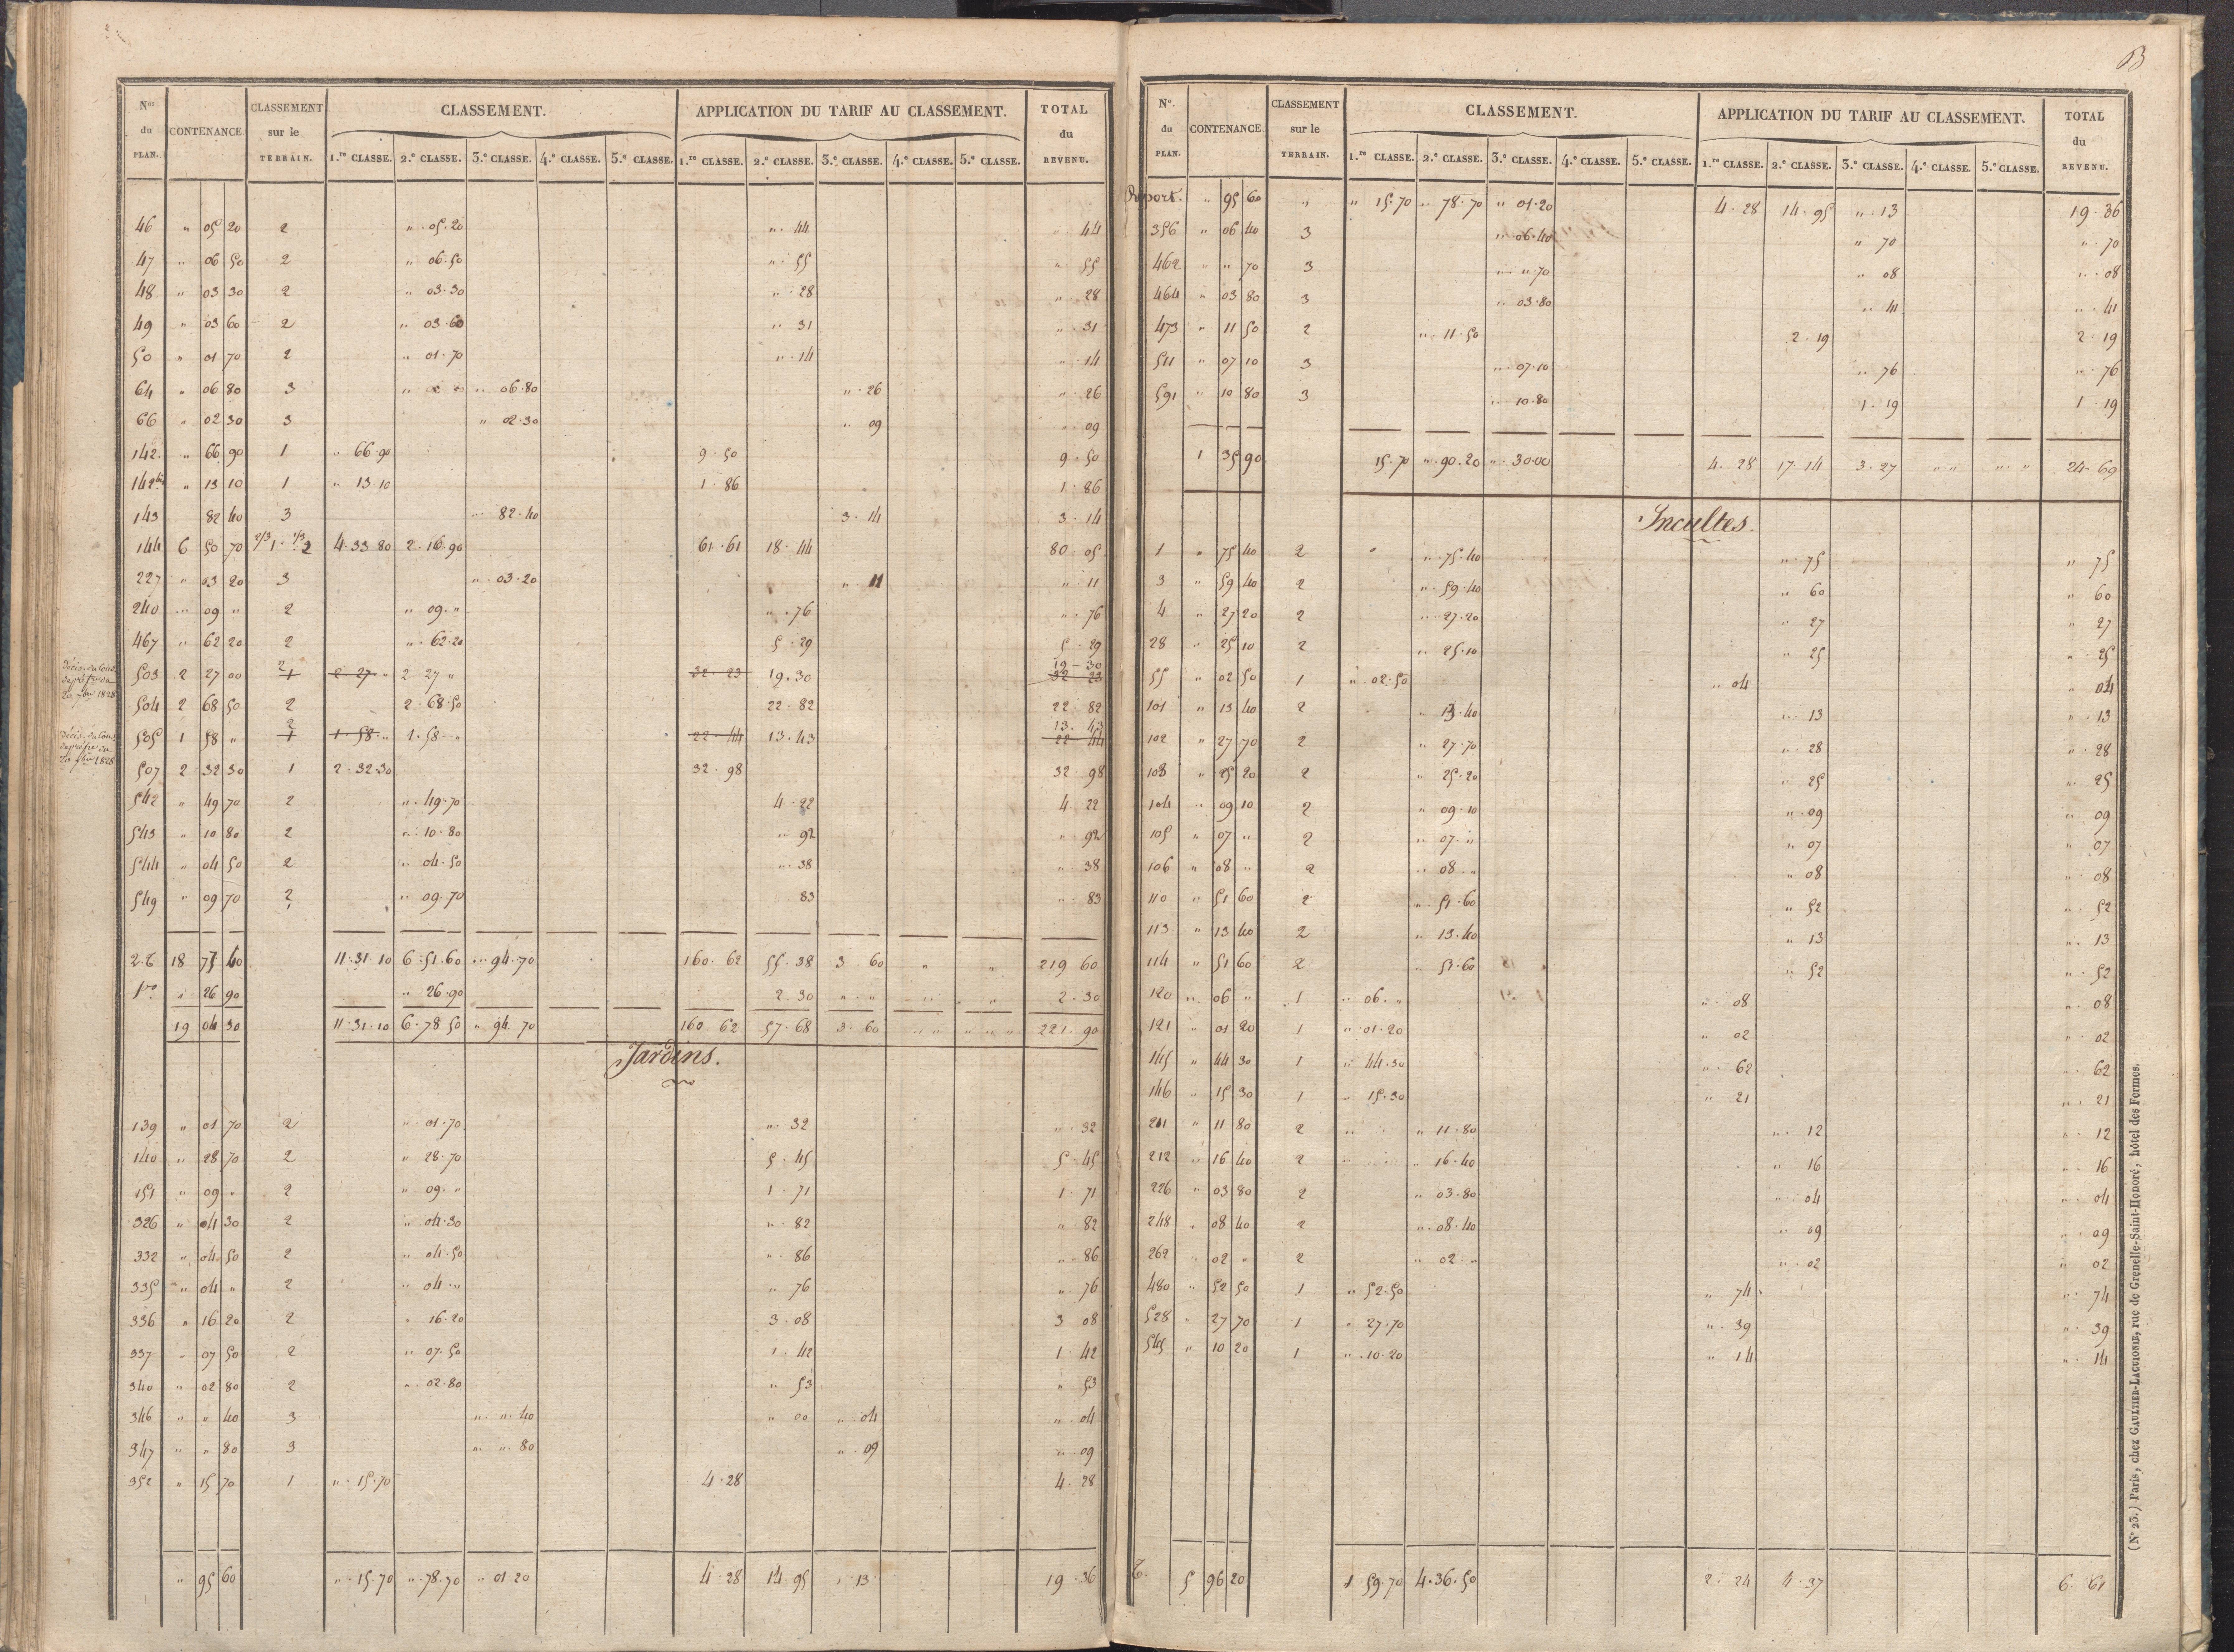 B
Nos du PLAN. CONTENANCE. CLASSEMENT sur le TERRAIN. CLASSEMENT. APPLICATION DU TARIF AU CLASSEMENT. TOTAL du REVENU.
1.re CLASSE. 2.e CLASSE. 3.e CLASSE. 4.e CLASSE. 5.e CLASSE. 1.re CLASSE. 2.e CLASSE. 3.e CLASSE. 4.e CLASSE. 5.e CLASSE.
46 " 05 20 2 " 05.20 " 44 " 44
47 " 06 50 2 " 06.50 " 55 " 55
48 " 03 30 2 " 03.30 " 28 " 28
49 " 03 60 2 " 03.60 " 31 " 31
50 " 01 70 2 " 01.70 " 14 " 14
64 " 06 80 3 " 06.80 " 26 " 26
66 " 02 30 3 " 02.30 " 09 " 09
142 " 66 90 1 " 66.90 9.50 9.50
142bis " 13 10 1 " 13.10 1.86 1.86
143 82 40 3 " 82.40 3.14 3.14
144 6 50 70 2/3 1. 1/3 2 4.33 80 2.16.90 61.61 18.44 80.05
227 " 03 20 3 " 03.20 " 11 " 11
240 " 09 " 2 " 09. " " 76 " 76
467 " 62 20 2 " 62.20 5.29 5.29
503 2 27 00 2 1 2.27 " 2 27 " 32.23 19.30 19-30 32 23
504 2 68 50 2 2.68.50 22.82 22.82
505 1 58 " 2 1 1.58 " 1.58 " 22.44 13.43 13.43 22 44
507 2 32 30 1 2.32.30 32.98 32.98
542 " 49 70 2 " 49.70 4.22 4.22
543 " 10 80 2 " 10.80 " 92 " 92
544 " 04 50 2 " 04.50 " 38 " 38
549 " 09 70 2 " 09.70 83 " 83
2.e 18 77 40 11.31.10 6.51.60 " 94.70 160.62 55.38 3.60 " " 219 60
1re " 26 90 " 26.90 2.30 " " 2.30
19 04 30 11.31.10 6.78 50 " 94.70 160.62 57.68 3.60 " " " " 221.90
Jardins.
139 " 01 70 2 " 01.70 " 32 " 32
140 " 28 70 2 " 28.70 5.45 5.45
151 " 09 " 2 " 09. " 1.71 1.71
326 " 04 30 2 " 04.30 " 82 " 82
332 " 04 50 2 " 04.50 " 86 " 86
335 " 04 " 2 " 04. " " 76 " 76
336 " 16 20 2 " 16.20 3.08 3 08
337 " 07 50 2 " 07.50 1.42 1.42
340 " 02 80 2 " 02.80 " 53 " 53
346 " " 40 3 " " 40 " 00 " 04 " 04
347 " " 80 3 " " 80 " 09 " 09
352 " 15 70 1 " 15.70 4.28 4.28
" 95 60 " 15.70 " 78.70 " 01 20 4.28 14.95 " 13 19.36
No. du PLAN. CONTENANCE. CLASSEMENT sur le TERRAIN. CLASSEMENT. APPLICATION DU TARIF AU CLASSEMENT. TOTAL du REVENU.
1.re CLASSE. 2.e CLASSE. 3.e CLASSE. 4.e CLASSE. 5.e CLASSE. 1.re CLASSE. 2.e CLASSE. 3.e CLASSE. 4.e CLASSE. 5.e CLASSE.
Report. " 95 60 " " 15.70 " 78.70 " 01.20 4.28 14.95 " 13 19.36
356 " 06 40 3 " 06.40 " 70 " 70
462 " " 70 3 " " 70 " 08 " 08
464 " 03 80 3 " 03.80 " 41 " 41
473 " 11 50 2 " 11.50 2.19 2.19
511 " 07 10 3 " 07.10 " 76 " 76
591 " 10 80 3 " 10.80 1.19 1.19
1 35 90 15.70 " 90.20 " 30.00 4.28 17.14 3.27 " " " " 24.69
Incultes.
1 " 75 40 2 " " 75.40 " 75 " 75
3 " 59 40 2 " 59.40 " 60 " 60
4 " 27 20 2 " 27.20 " 27 " 27
28 " 25 10 2 " 25.10 " 25 " 25
55 " 02 50 1 " 02.50 " 04 " 04
101 " 13 40 2 " 13.40 " 13 " 13
102 " 27 70 2 " 27.70 " 28 " 28
103 " 25 20 2 " 25.20 " 25 " 25
104 " 09 10 2 " 09.10 " 09 " 09
105 " 07 " 2 " 07. " " 07 " 07
106 " 08 " 2 " 08. " " 08 " 08
110 " 51 60 2 " 51.60 " 52 " 52
113 " 13 40 2 " 13.40 " 13 " 13
114 " 51 60 2 " 51.60 " 52 " 52
120 " 06 " 1 " 06. " " 08 " 08
121 " 01 20 1 " 01.20 " 02 " 02
145 " 44 30 1 " 44.30 " 62 " 62
146 " 15 30 1 " 15.30 " 21 " 21
211 " 11 80 2 " " 11.80 " 12 " 12
212 " 16 40 2 " " 16.40 " 16 " 16
226 " 03 80 2 " 03.80 " 04 " 04
248 " 08 40 2 " 08.40 " 09 " 09
262 " 02 " 2 " 02 " " 02 " 02
480 " 52 50 1 " 52.50 " 74 " 74
528 " 27 70 1 " 27.70 " 39 " 39
545 " 10 20 1 " 10.20 " 14 " 14
5 96 20 1 59.70 4.36.50 2.24 4.37 6.61
(No 23.) Paris, chez GAULTIER-LAGUIONIE, rue de Grenelle-Saint-Honoré, hôtel des Fermes.